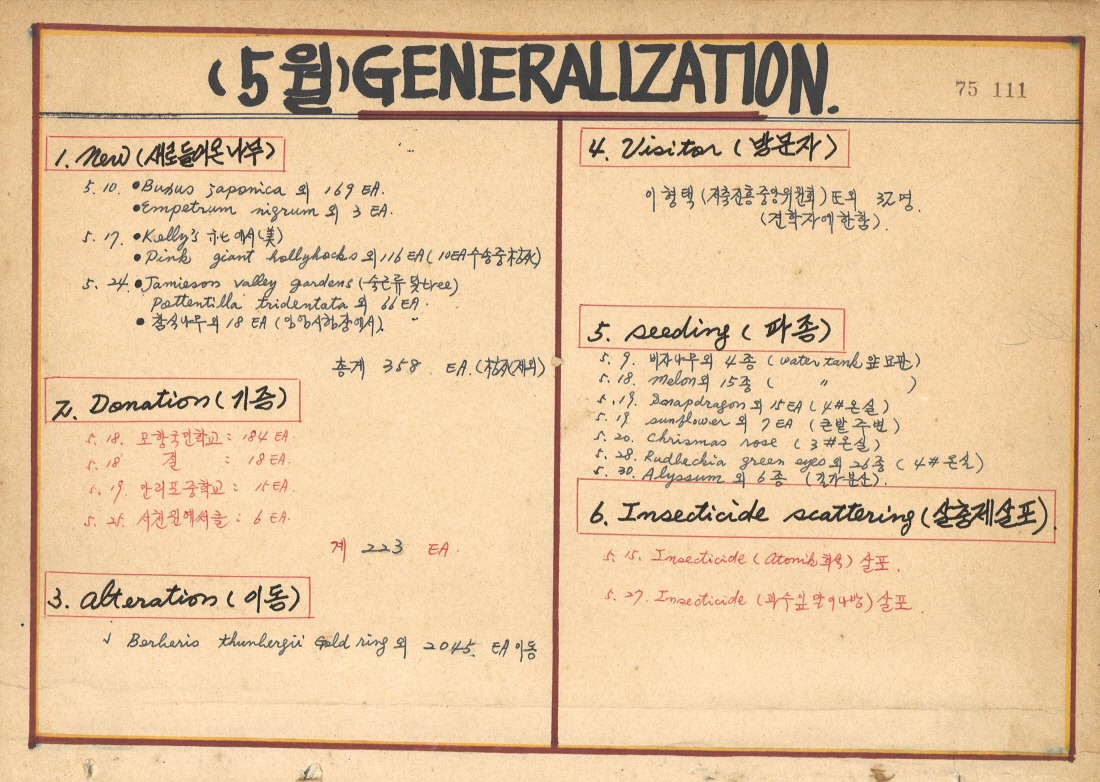 (5월) GENERALIZATION.
75 111
1. New (새로들어온나무)
5. 10. • Buxus japonica 외 169 EA.
• Empetrum nigrum 외 3 EA.
5. 17. • Kelly's 에서(美)
• Pink giant hollyhocks 외 116 EA (10EA 수송중 枯死)
5. 24. • Jamieson valley gardens (숙근류 및 tree)
Pottentilla tridentata 외 66 EA.
• 참식나무외 18 EA
총계 358 EA. (枯死제외)
2. Donation (기증)
5. 18. 모항국민학교 : 184 EA.
5. 18 절 : 18 EA.
5. 19. 만리포중학교 : 15 EA.
5. 25. : 6 EA.
계 223 EA.
3. alteration (이동)
√ Berheris thunhergii Gold ring 외 2045. EA 이동
4. Visitor (방문자)
이형택 (저축진흥중앙위원회) 氏외 32명.
(견학자에한함).
5. seeding (파종)
5. 9. 비자나무외 4종 (water tank 앞 묘판)
5. 18. melon외 15종 ( " )
5. 19. Snapdragon 외 15EA (4#온실)
5. 19. sunflower 외 7 EA (큰밭주변)
5. 20. Chrismas rose (3#온실)
5. 28. Rudbeckia green eyes외 26종 (4#온실)
5. 30. Alyssum 외 6종
6. Insecticide scattering (살충제살포)
5. 15. Insecticide (Atonik 희석) 살포.
5. 27. Insecticide 살포